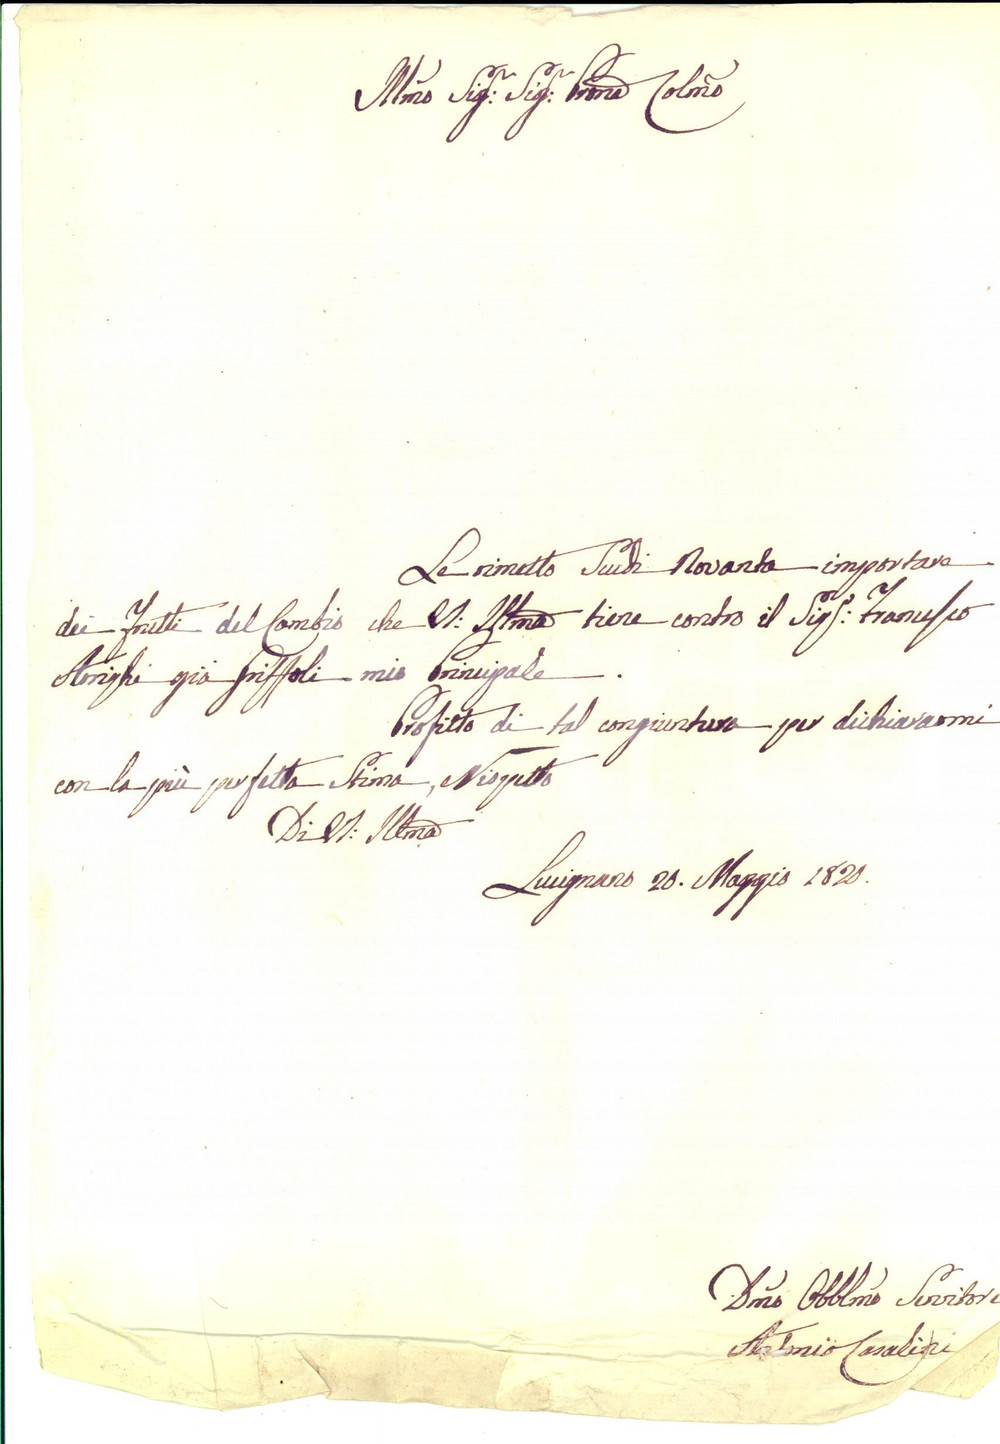 Illmo Sig.r Sig.r Prone Colmo
Le rimetto Scudi Novanta importare
dei Frutti del Cambio che V: Illma tiene contro il Sig.r Francesco
Arrighi già Griffoli mio Principale.
Profitto di tal congiuntura per dichiararmi
con la più perfetta Stima, e Rispetto
Di V: Illma
Lucignano 20. Maggio 1820.
Dmo Obblmo Servitore
Antonio Casalini